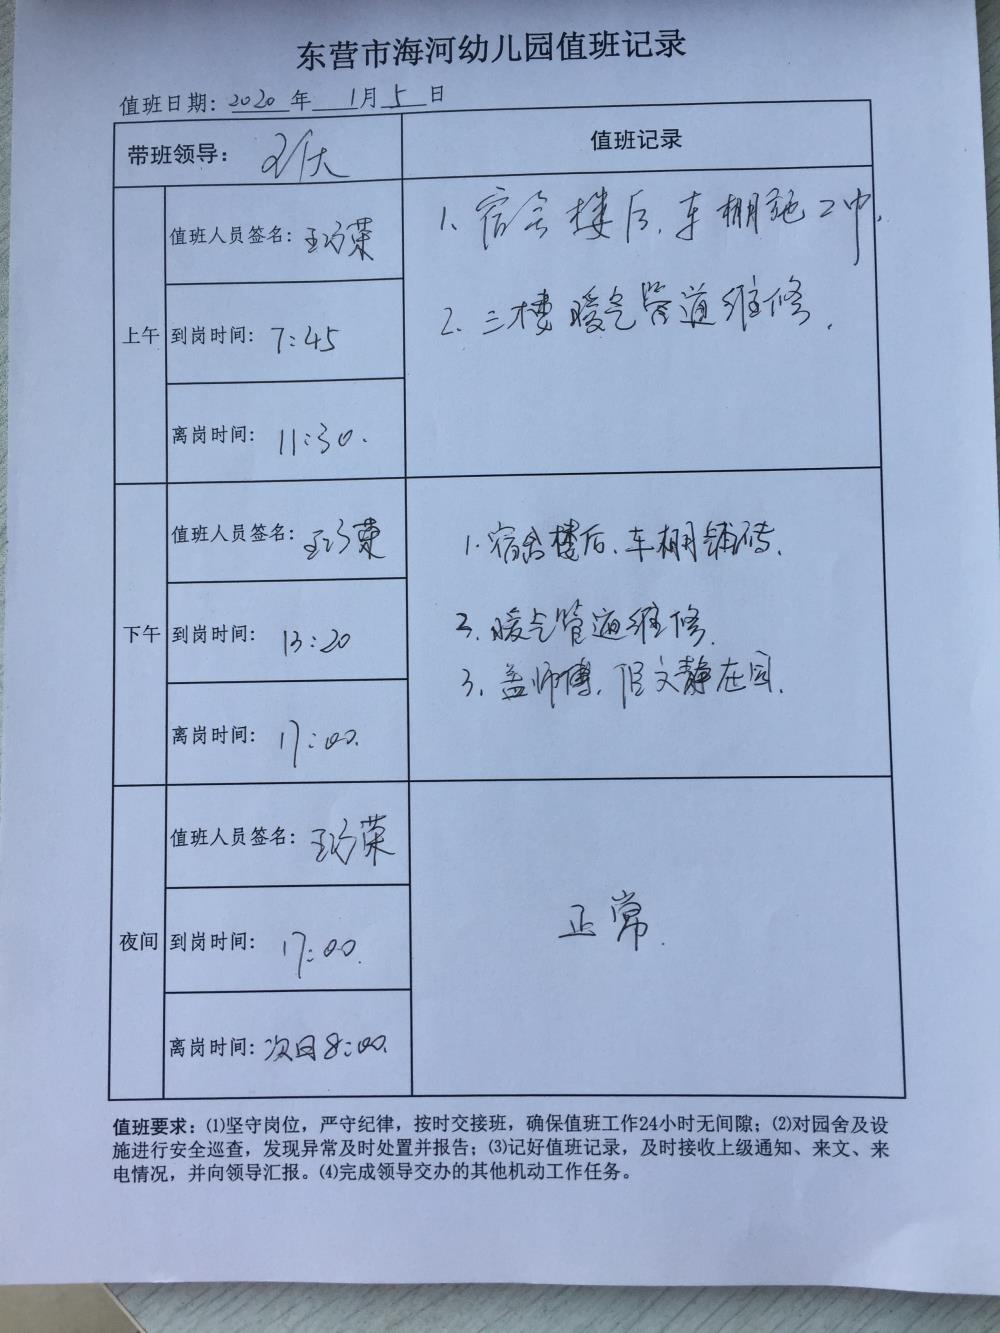 东营市海河幼儿园值班记录
值班日期: 2020 年 1月 5 日
带班领导:
值班记录
上午
值班人员签名: 王巧荣
到岗时间: 7:45
离岗时间: 11:30.
1、宿舍楼后、车棚施工中.
2、三楼暖气管道维修.
下午
值班人员签名: 王巧荣
到岗时间: 13:20
离岗时间: 17:00.
1.宿舍楼后、车棚铺砖.
2.暖气管道维修.
3、盖师傅、文静在园.
夜间
值班人员签名: 王巧荣
到岗时间: 17:00.
离岗时间: 次日8:00.
正常.
值班要求: (1)坚守岗位，严守纪律，按时交接班，确保值班工作24小时无间隙；(2)对园舍及设
施进行安全巡查，发现异常及时处置并报告；(3)记好值班记录，及时接收上级通知、来文、来
电情况，并向领导汇报。(4)完成领导交办的其他机动工作任务。